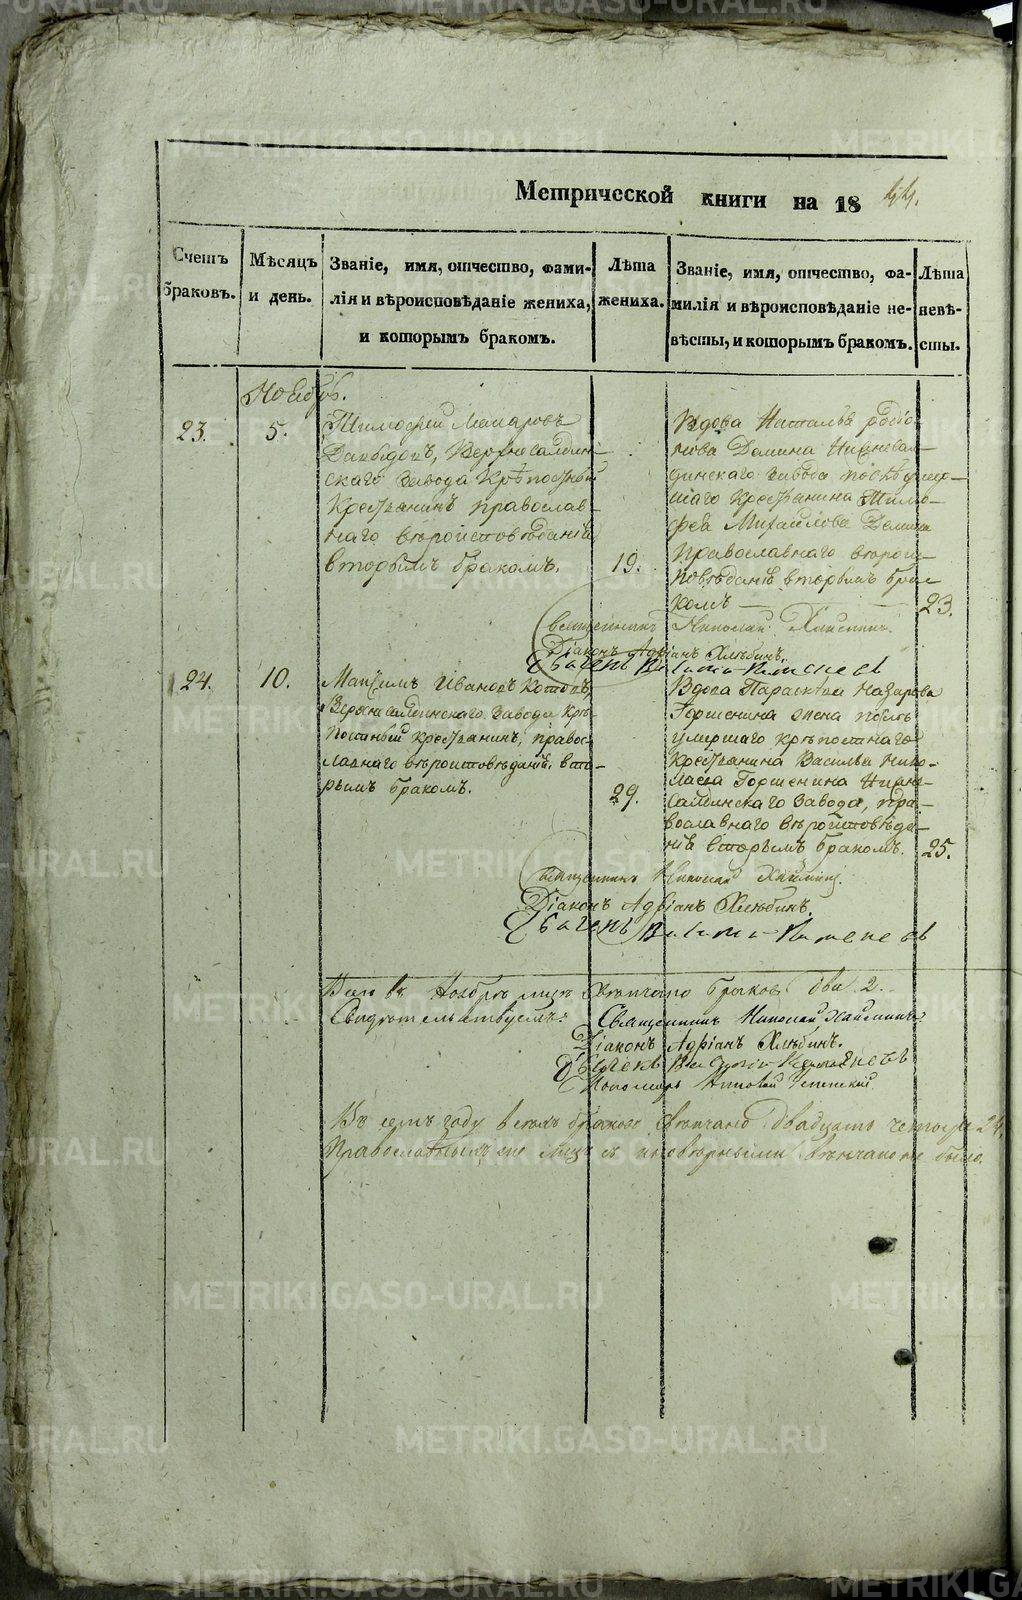 Метрической книги на 18 44.
Счетъ браковъ.
Мѣсяцъ и день.
Званіе, имя, отчество, фами-
лія и вѣроисповѣданіе жениха,
и которымъ бракомъ.
Лѣта жениха.
Званіе, имя, отчество, фа-
милія и вѣроисповѣданіе не-
вѣсты, и которымъ бракомъ.
Лѣта невѣ-
сты.
Ноябрь.
23.
5.
Тимофей Макаровъ
Верхнесалдин-
скаго завода крѣпостный
крестьянинъ православ-
наго вѣроисповѣданія
вторымъ бракомъ.
19.
Вдова Наталья родіо-
нова Демина Нижнесал-
динскаго завода послѣ умер-
шаго крестьянина Тимо-
фея Михайлова Демина
православнаго вѣрои-
повѣданія вторымъ бра-
комъ
23.
священникъ Николай
Діаконъ Адріанъ Хлѣбинъ.
24.
10.
Максимъ Ивановъ Котовъ,
Верхнесалдинскаго завода крѣ-
постный крестьянинъ, право-
славнаго вѣроисповѣданія, вто-
рымъ бракомъ.
29.
Вдова Параскева Назарова
Горшенина жена послѣ
умершаго крѣпостнаго
крестьянина Василья Нико-
лаева Горшенина Нижне-
салдинскаго завода, пра-
вославнаго вѣроисповѣда-
нія вторымъ бракомъ.
25.
священникъ Николай
Діаконъ Адріанъ Хлѣбинъ.
Всего въ Ноябрѣ мцѣ вѣнчано браковъ два 2.
Свидѣтельствуемъ: Священникъ Николай
Діаконъ Адріанъ Хлѣбинъ.
Пономарь Успенскій
Въ семъ году всѣхъ браковъ вѣнчано двадцать четыре 24.
Православныхъ же лицъ съ иновѣрными вѣнчано не было.
METRIKI.GASO-URAL.RU